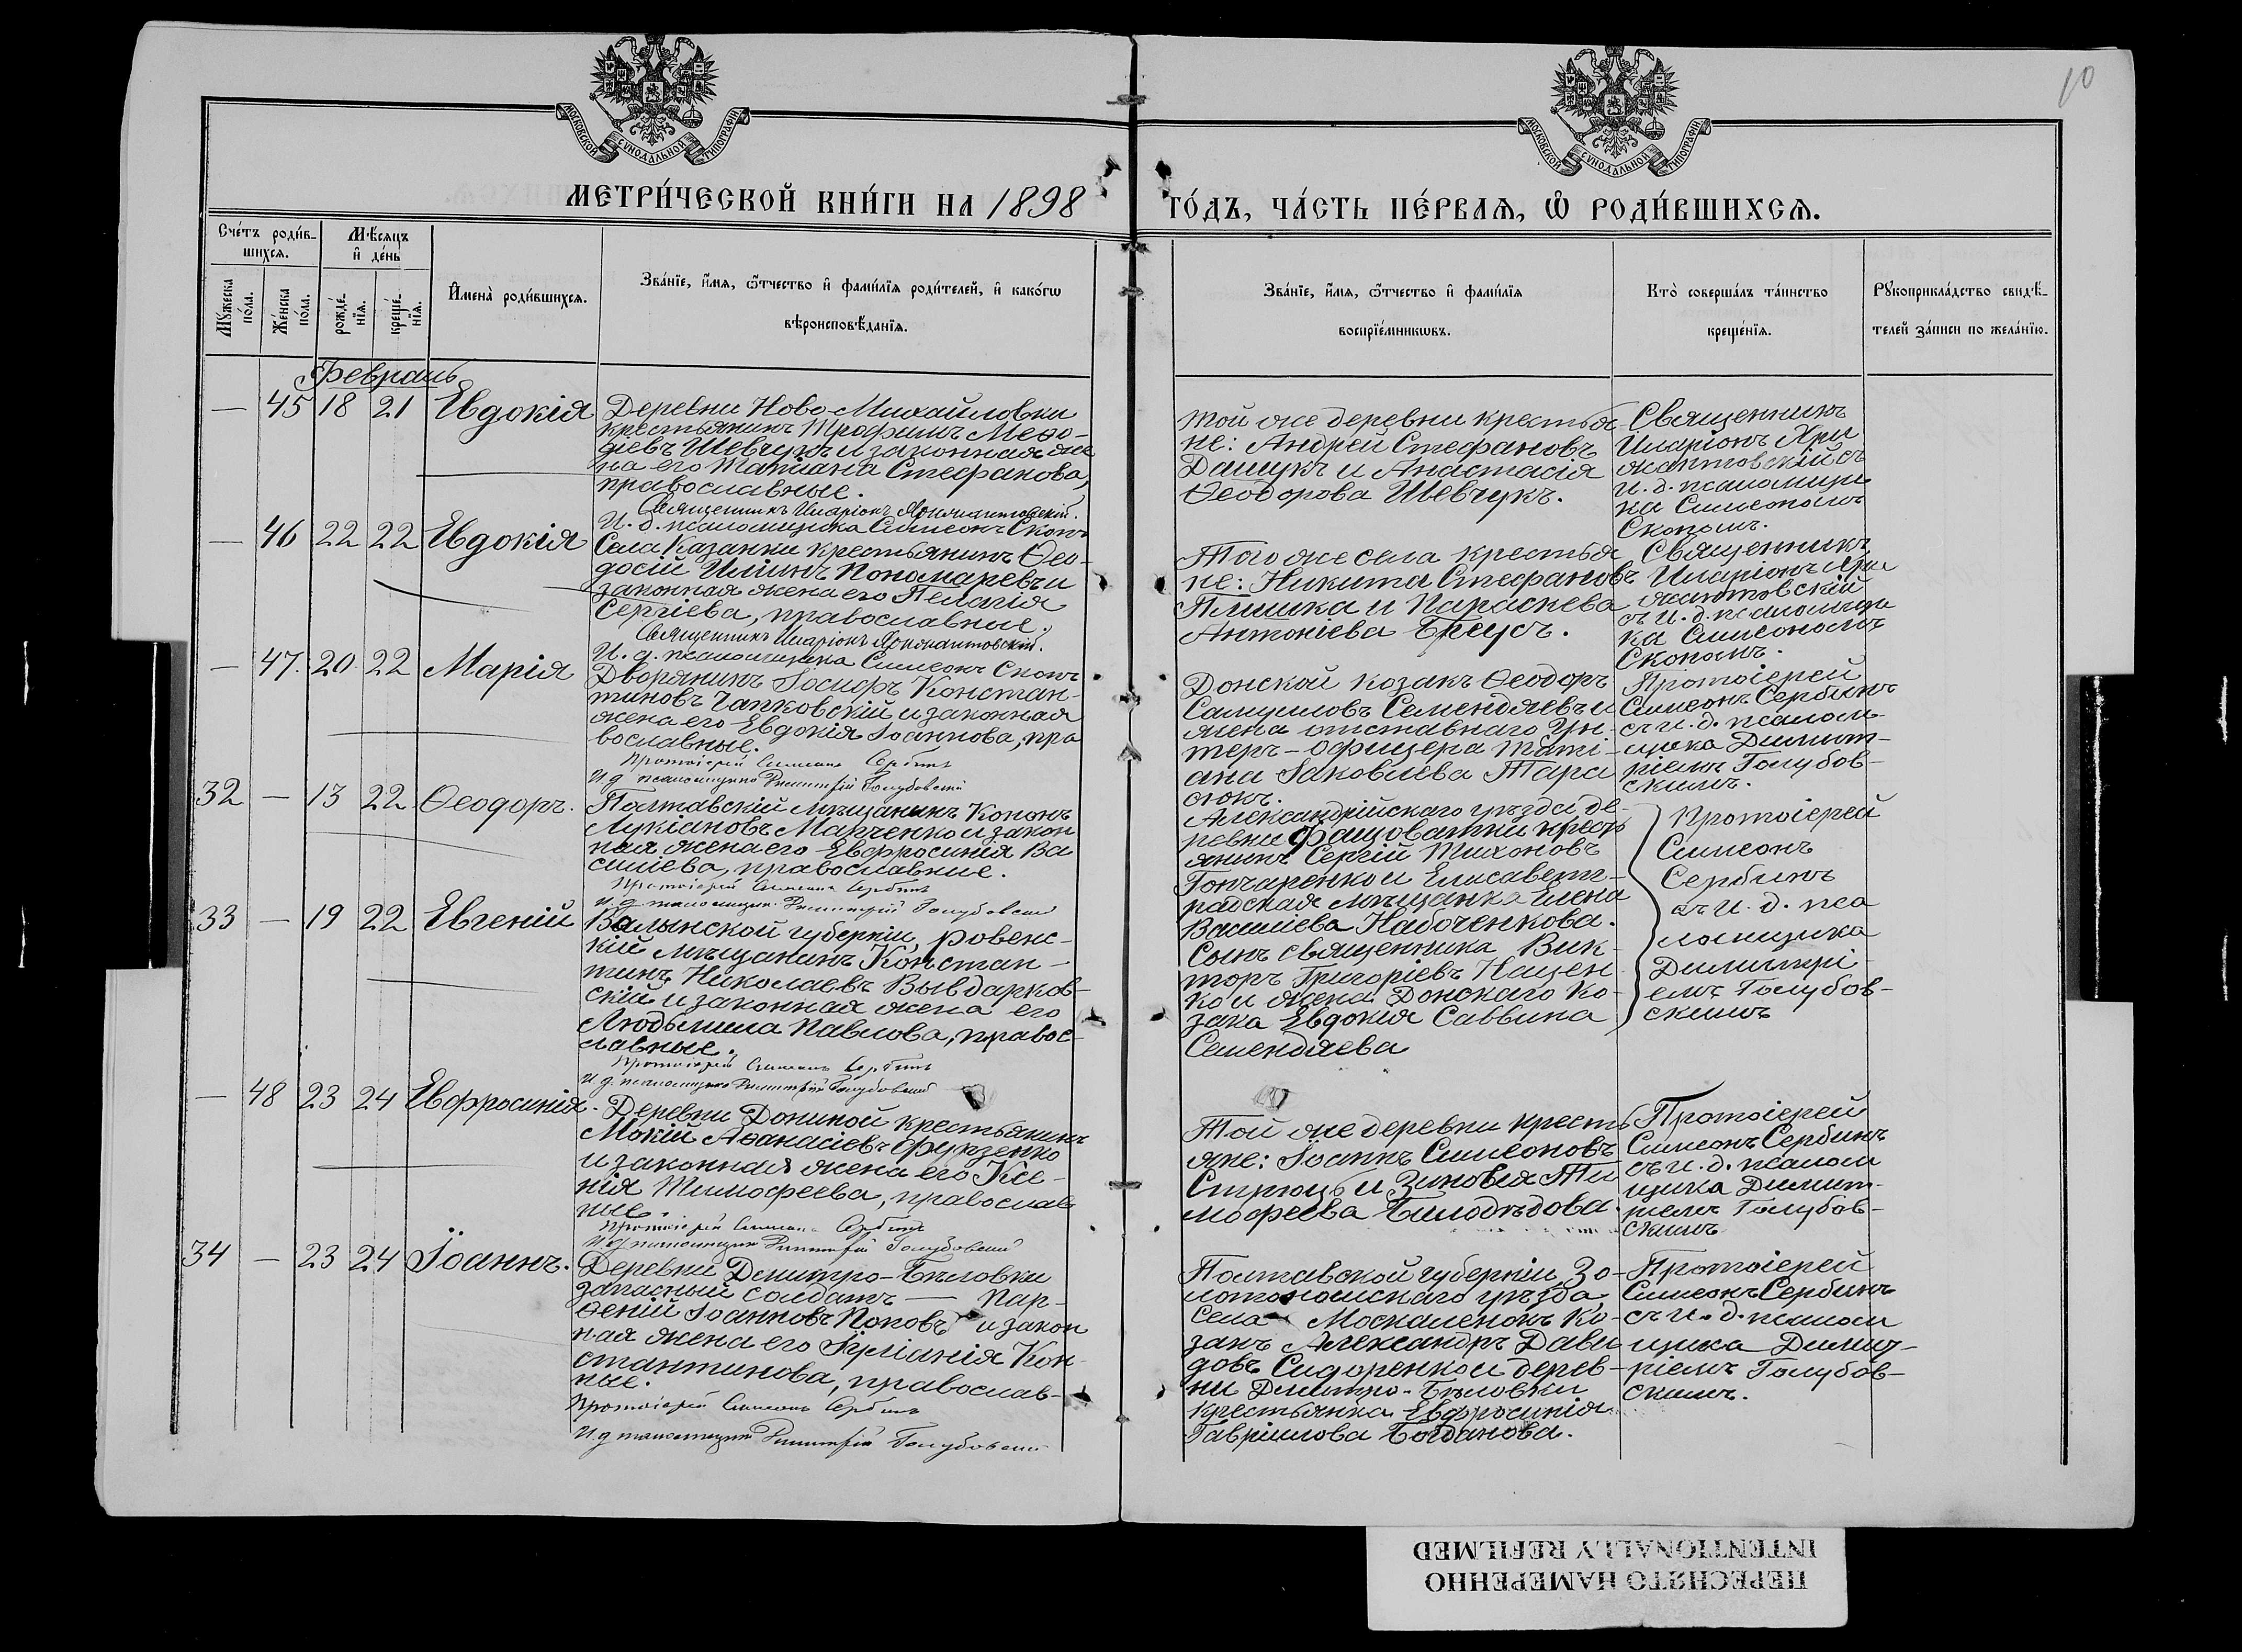 МОСКОВСКОЙ СѴНОДАЛЬНОЙ ТИПОГРАФІИ
МОСКОВСКОЙ СѴНОДАЛЬНОЙ ТИПОГРАФІИ
10
МЕТРИ́ЧЕСКОЙ КНИ́ГИ НА 1898
ГО́ДЪ, ЧА́СТЬ ПЕ́РВАѦ, Ѽ РОДИ́ВШИХСѦ.
Сче́тъ роди́в-
шихсѧ.
Мѣ́сѧцъ
и҆ де́нь
Мꙋ́жеска
по́ла.
Же́нска
по́ла.
рожде́-
нїѧ.
креще́-
нїѧ.
И҆мена̀ роди́вшихсѧ.
Зва́нїе, и҆́мѧ, ѻ҆́тчество и҆ фами́лїѧ роди́телей, и҆ како́гѡ
вѣроисповѣ́данїѧ.
Зва́нїе, и҆́мѧ, ѻ҆́тчество и҆ фами́лїѧ
воспрїе́мникѡвъ.
Кто̀ соверша́лъ та́инство
креще́нїѧ.
Рꙋкоприкла́дство свидѣ́-
телей за́писи по жела́нїю.
Февраль
— 45 18 21 Евдокія
Деревни Ново-Михайловки
крестьянинъ Трофимъ Меѳо-
діевъ Шевчукъ и законная же
на его Татіана Стефанова,
православные.
Священникъ Иларіонъ
И. д. псаломщика Симеонъ Скопъ
той же деревни крестья-
не: Андрей Стефановъ
Дащукъ и Анастасія
Ѳеодорова Шевчукъ.
Священникъ
Иларіонъ Хри
жантовскій съ
и. д. псаломщи
ка Симеономъ
Скопомъ.
— 46 22 22 Евдокія
Села Казанки крестьянинъ Ѳео-
досій Илiинъ Пономаревъ и
законная жена его Пелагія
Сергіева, православные.
Священникъ Иларіонъ
И. д. псаломщика Симеонъ Скопъ
Того же села крестья
не: Никита Стефановъ
Плишка и Параскева
Антоніева Бреусъ.
Священникъ
Иларіонъ Хри
жантовскій
съ и. д. псаломщи
ка Симеономъ
Скопомъ.
— 47. 20 22 Марія
Дворянинъ Іосифъ Констан-
тиновъ Чапковскій и законная
жена его Евдокія Іоаннова, пра
вославные.
Протоіерей Симеонъ Сербинъ
И д псаломщика Димитрій Голубовскій
Донской козакъ Ѳеодоръ
Самуиловъ Семендяевъ и
жена отставнаго Ун-
теръ-офицера Татi-
ана Іаковлева Тара
сюкъ.
Протоіерей
Симеонъ Сербинъ
съ и. д. псалом-
щика Димит-
ріемъ Голубов-
скимъ.
32 — 13 22 Ѳеодоръ.
Полтавскій мѣщанинъ Кононъ
Лукіановъ Марченко и закон
ная жена его Евфросинія Ва
силіева, православные.
Протоіерей Симеонъ Сербинъ
И д псаломщика Димитрій Голубовскій
Александрійскаго уѣзда де-
ревни крест
янинъ Сергій Тихоновъ
Гончаренко и Елисавет-
радская мѣщанка Елена
Василіева Набоченкова.
Протоіерей
Симеонъ
Сербинъ
съ и. д. пса
ломщика
Димитрі-
емъ Голубов-
скимъ
33 — 19 22 Евгеній
Валынской губерніи, Ровенс-
кій мѣщанинъ Констан-
тинъ Николаевъ
скій и законная жена его
Людьмила Павлова, правос-
лавные.
Протоіерей Симеонъ Сербинъ
И д. псаломщика Димитрій Голубовскій
Сынъ священника Вик-
торъ Григоріевъ Нащен
ко и жена Донскаго Ко-
зака Евдокія Саввина
Семендяева
— 48 23 24 Евфросинія.
Деревни Дониной крестьянинъ
Мокій Аѳанасіевъ Фурзенко
и законная жена его Ксе-
нія Тимофеева, православ
ные.
Протоіерей Симеонъ Сербинъ
И д псаломщика Димитрій Голубовскій
Той же деревни крестъ
яне: Іоаннъ Симеоновъ
и Зиновія Ти
мофеева Билодѣдова.
Протоіерей
Симеонъ Сербинъ
съ и. д. псалом
щика Димит-
ріемъ Голубов-
скимъ
34 — 23 24 Іоаннъ.
Деревни Димитро-Бѣловки
запасный солдатъ — Пар-
ѳеній Іоанновъ Поповъ и закон
ная жена его Іуліанія Кон-
стантинова, православ-
ные.
Протоіерей Симеонъ Сербинъ
И. д псаломщика Димитрій Голубовскій
Полтавской губерніи, Зо-
лотоношскаго уѣзда
Села Москаленокъ ко-
закъ Александръ Дави
довъ Сидоренко и дерев-
ни Димитро-Бѣловки
крестьянка Евфросинія
Гавріилова Богданова.
Протоіерей
Симеонъ Сербинъ
съ и. д. псалом
щика Димит-
ріемъ Голубов-
скимъ.
ПЕРЕСНЯТО НАМЕРЕННО
INTENTIONALLY REFILMED